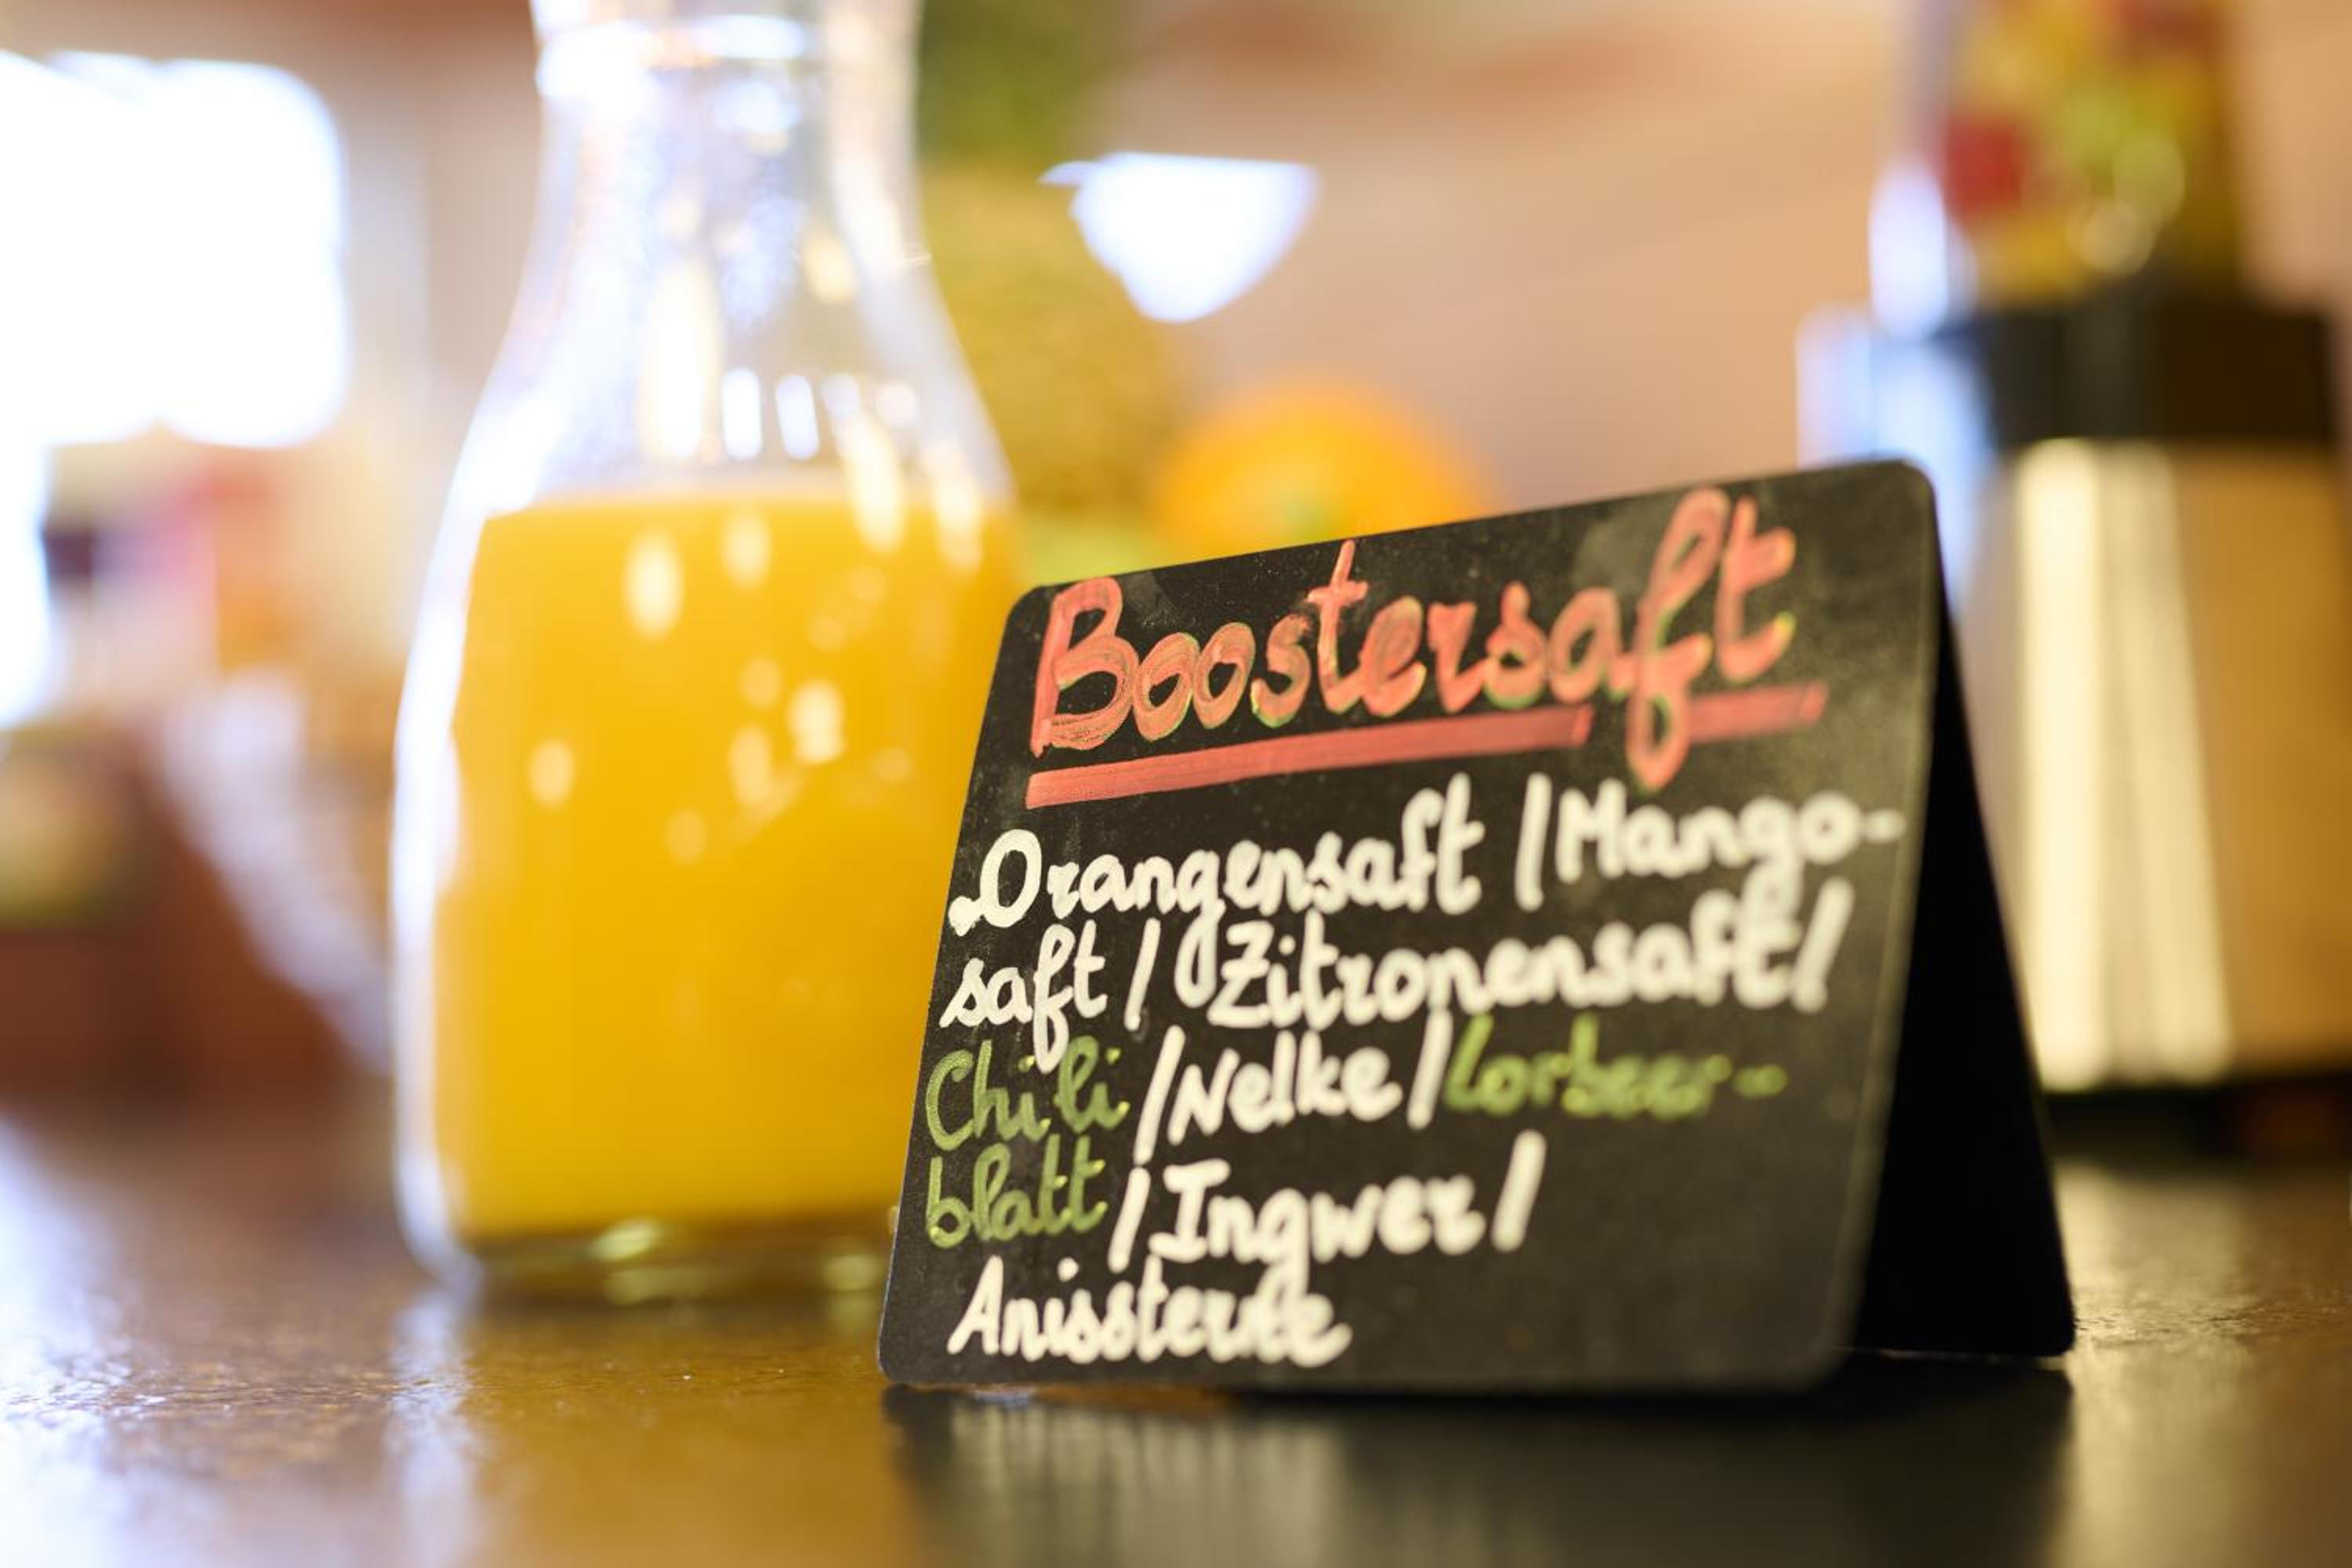 Boostersaft
Orangensaft / Mango-
saft / Zitronensaft /
Chili / Nelke / Lorbeer-
blatt / Ingwer /
Anissterne